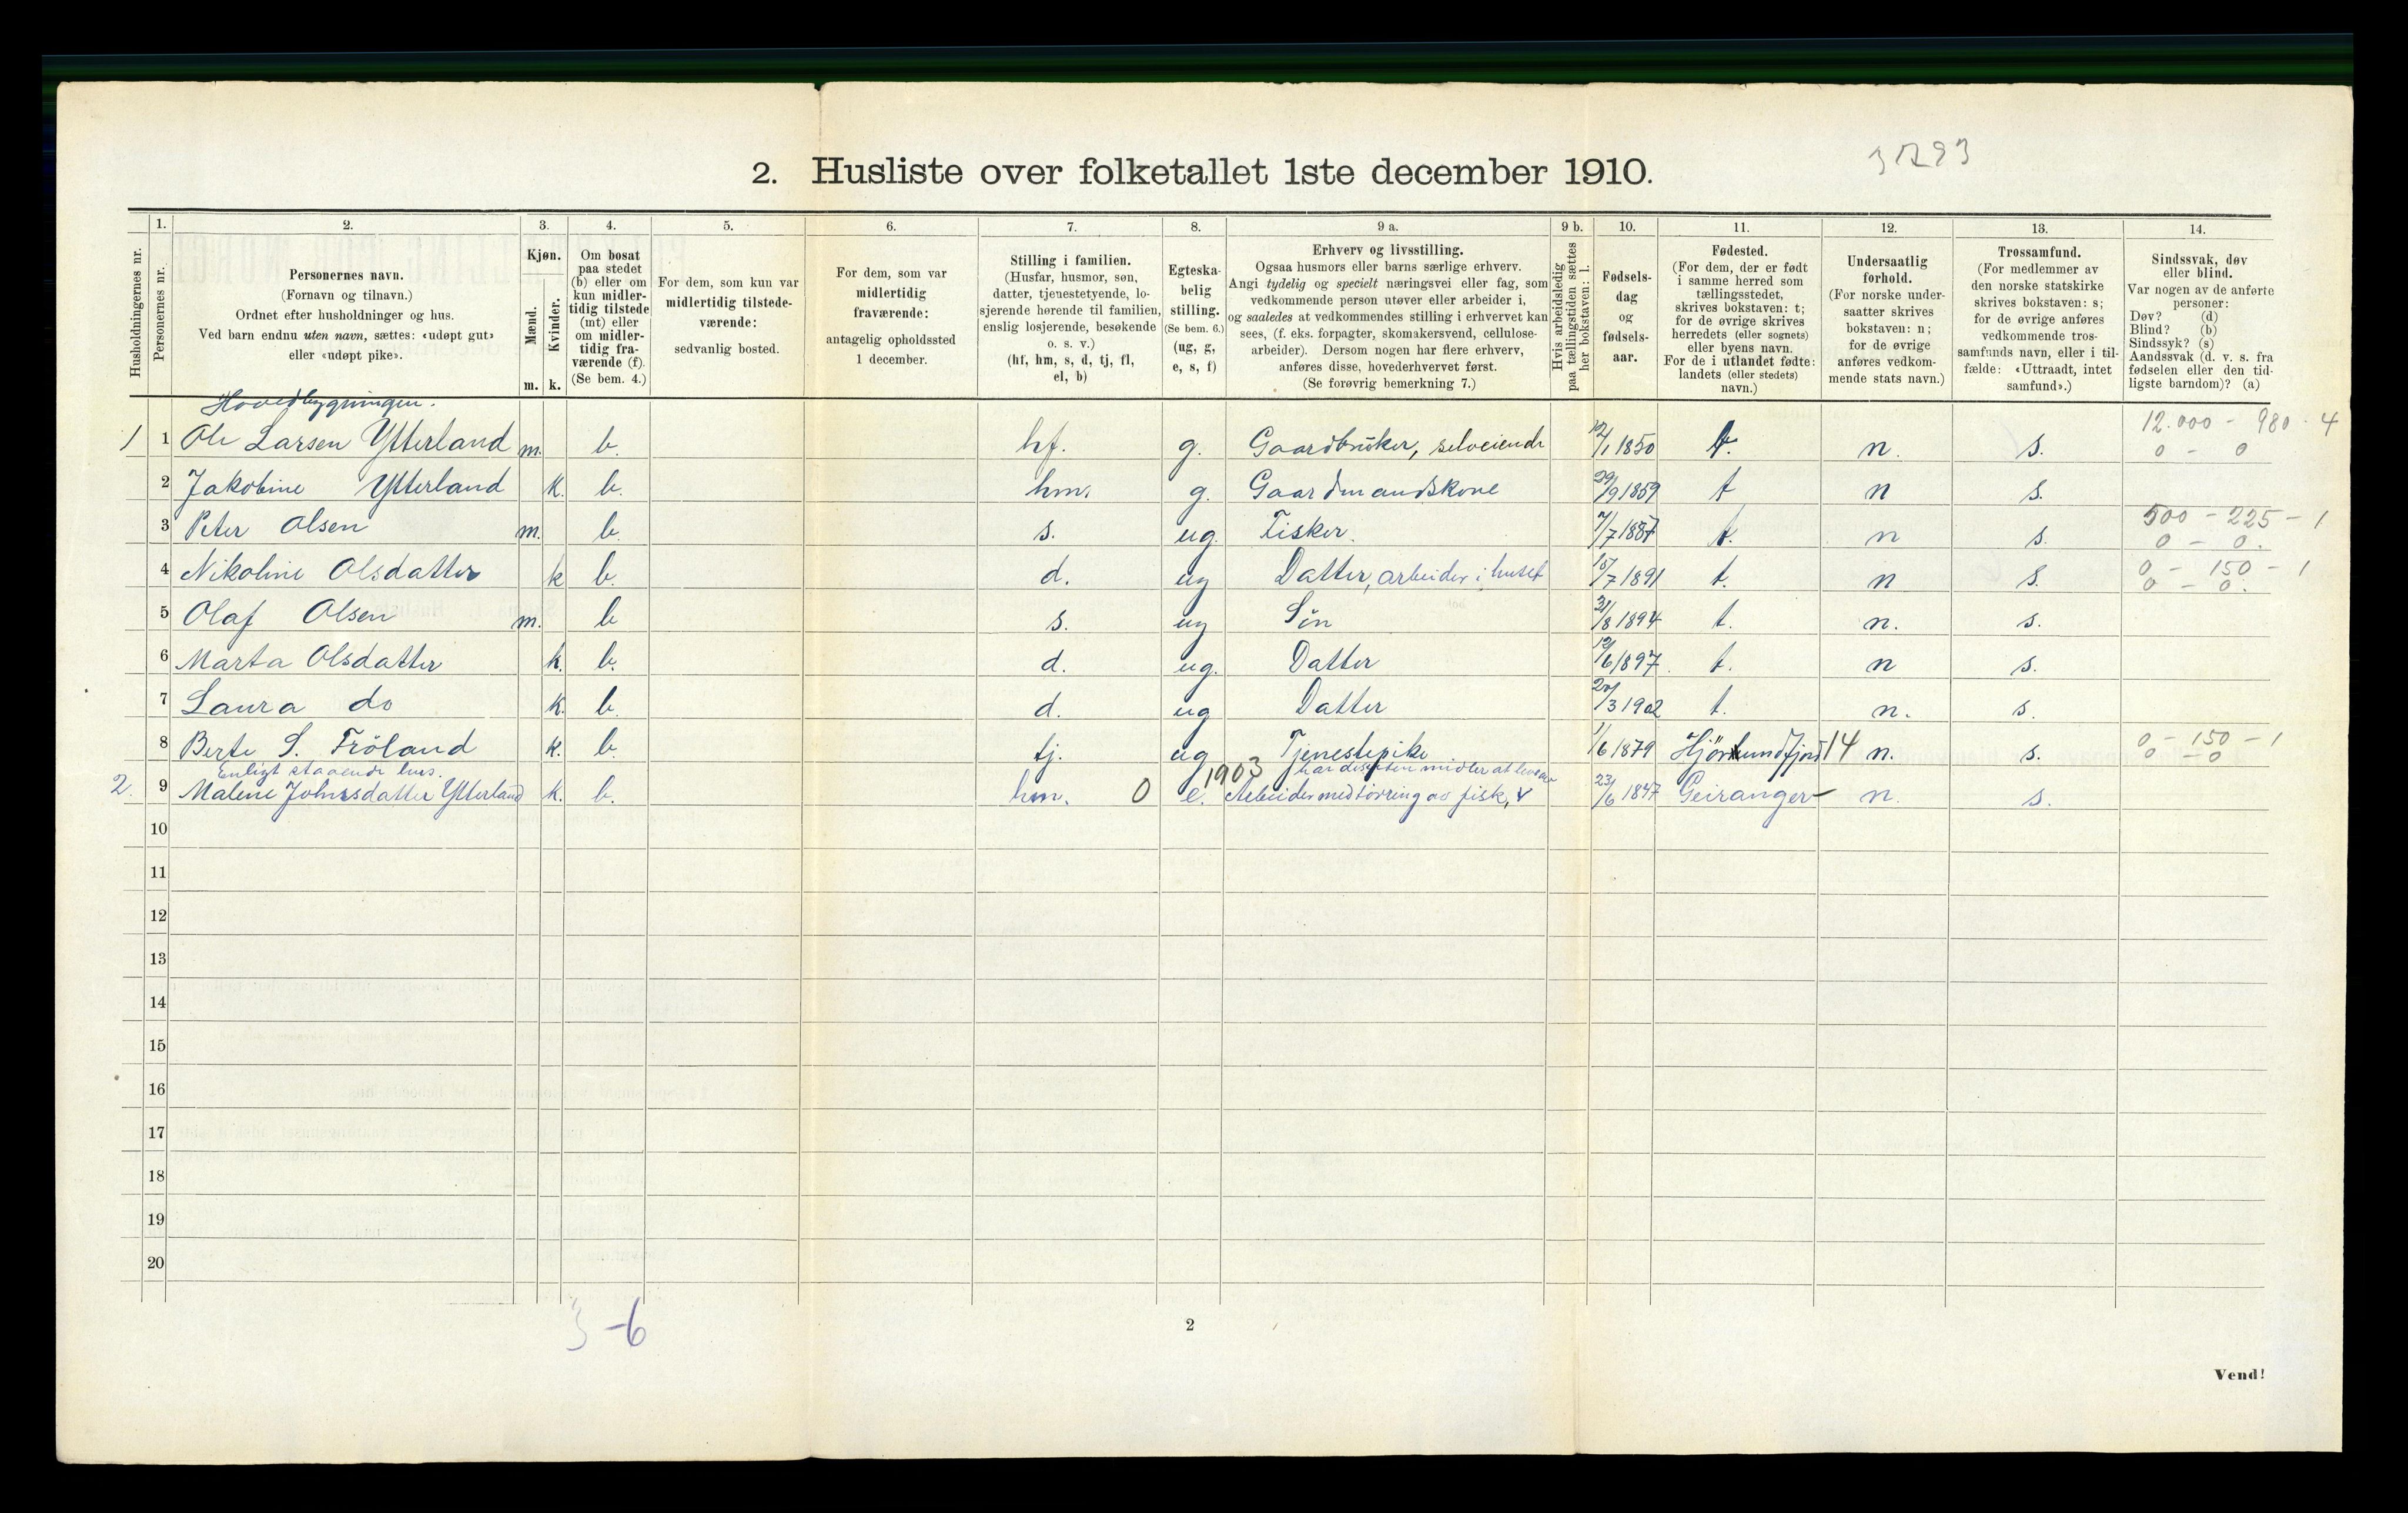 2. Husliste over folketallet 1ste december 1910.
Husholdningernes nr.
1. Personernes nr.
2. Personernes navn.
(Fornavn og tilnavn.)
Ordnet efter husholdninger og hus.
Ved barn endnu uten navn, sættes: «udøpt gut»
eller «udøpt pike».
3. Kjøn.
Mænd. Kvinder.
m. k.
4. Om bosat
paa stedet
(b) eller om
kun midler-
tidig tilstede
(mt) eller
om midler-
tidig fra-
værende (f).
(Se bem. 4.)
5. For dem, som kun var
midlertidig tilstede-
værende:
sedvanlig bosted.
6. For dem, som var
midlertidig
fraværende:
antagelig opholdssted
1 december.
7. Stilling i familien.
(Husfar, husmor, søn,
datter, tjenestetyende, lo-
sjerende hørende til familien,
enslig losjerende, besøkende
o. s. v.)
(hf, hm, s, d, tj, fl,
el, b)
8. Egteska-
belig
stilling.
(Se bem. 6.)
(ug, g,
e, s, f)
9 a. Erhverv og livsstilling.
Ogsaa husmors eller barns særlige erhverv.
Angi tydelig og specielt næringsvei eller fag, som
vedkommende person utøver eller arbeider i,
og saaledes at vedkommendes stilling i erhvervet kan
sees, (f. eks. forpagter, skomakersvend, cellulose-
arbeider). Dersom nogen har flere erhverv,
anføres disse, hovederhvervet først.
(Se forøvrig bemerkning 7.)
9 b. Hvis arbeidsledig
paa tællingstiden sættes
her bokstaven: l.
10. Fødsels-
dag
og
fødsels-
aar.
11. Fødested.
(For dem, der er født
i samme herred som
tællingsstedet,
skrives bokstaven: t;
for de øvrige skrives
herredets (eller sognets)
eller byens navn.
For de i utlandet fødte:
landets (eller stedets)
navn.)
12. Undersaatlig
forhold.
(For norske under-
saatter skrives
bokstaven: n;
for de øvrige
anføres vedkom-
mende stats navn.)
13. Trossamfund.
(For medlemmer av
den norske statskirke
skrives bokstaven: s;
for de øvrige anføres
vedkommende tros-
samfunds navn, eller i til-
fælde: «Uttraadt, intet
samfund».)
14. Sindssvak, døv
eller blind.
Var nogen av de anførte
personer:
Døv? (d)
Blind? (b)
Sindssyk? (s)
Aandssvak (d. v. s. fra
fødselen eller den tid-
ligste barndom)? (a)
Hovedbygningen.
12.000 - 980 - 4
1 1 Ole Larsen Ytterland m. b. hf. g. Gaardbruker, selveiende /1 1850 t. n. s. 0 - 0
2 Jakobine Ytterland k. b. hm. g. Gaardmandskone 29/9 1859 t n s.
500 - 225 - 1
3 Peter Olsen m. b. s. ug. Fisker. 7/7 1887 t. n s. 0 - 0.
0 - 150 - 1
4 Nikoline Olsdatter k b. d. ug Datter, arbeider i huset 15/7 1891 t. n s. 0 - 0.
5 Olaf Olsen m. b s. ug Sön 31/8 1894 t. n. s.
6 Marta Olsdatter k. b. d. ug. Datter 12/6 1897 t. n s.
7 Laura do k. b. d. ug Datter 20/3 1902 t. n. s.
0 - 150 - 1
8 Berte S. Fröland k. b. tj. ug Tjenestepike 1/6 1879 Hjörundfjord 14 n. s. 0 - 0
Enligt staaende hus. 1903
2. 9 Malene Johnsdatter Ytterland k. b. hm. 0 e. Arbeider med törring av fisk, 23/6 1847 Geiranger - n. s.
10
11
12
13
14
15
16
17
18
19
20
3-6
2
Vend!